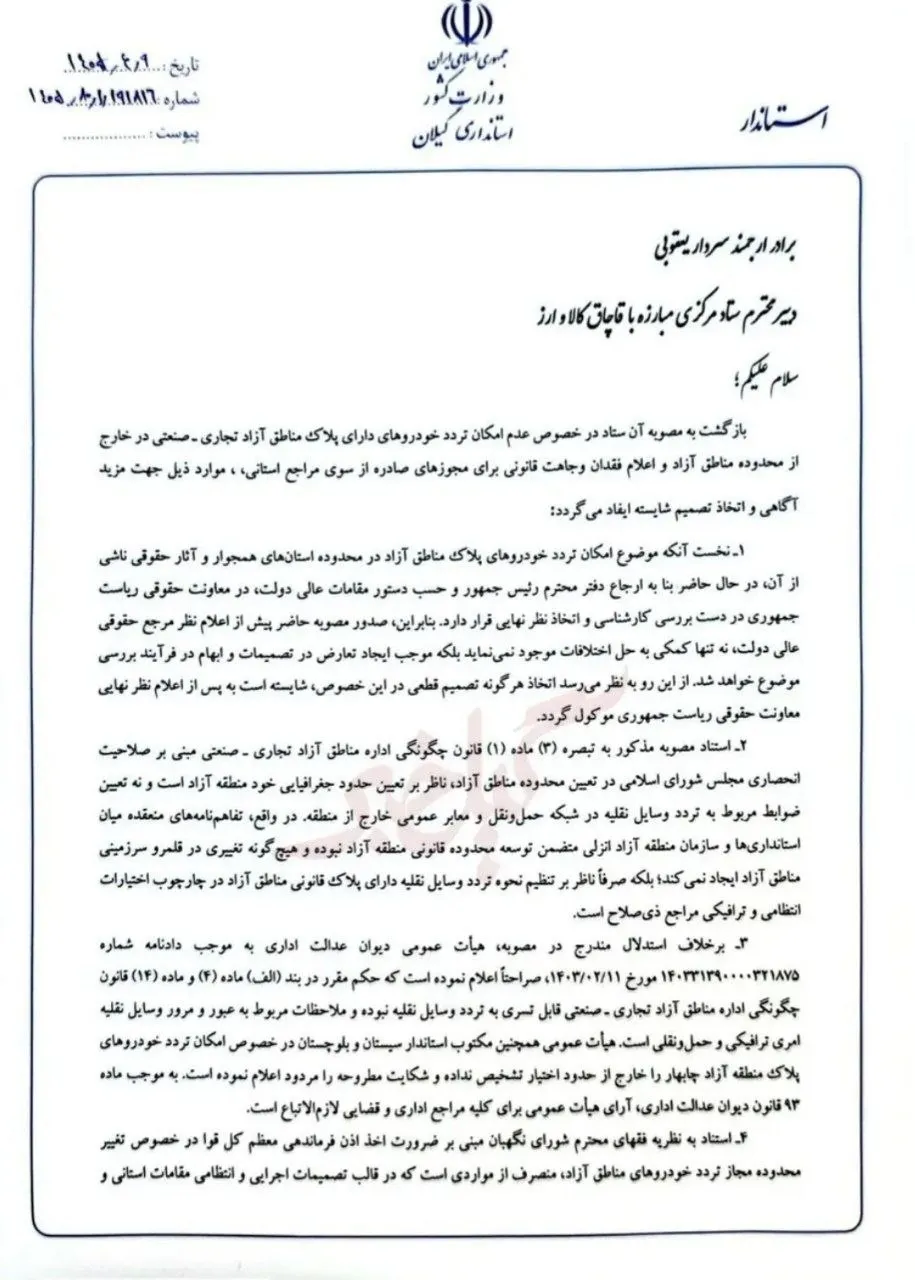 جمهوری اسلامی ایران
وزارت کشور
استانداری گیلان
استاندار
تاریخ :
شماره :
پیوست :
برادر ارجمند سردار یعقوبی
دبیر محترم ستاد مرکزی مبارزه با قاچاق کالا و ارز
سلام علیکم؛
بازگشت به مصوبه آن ستاد در خصوص عدم امکان تردد خودروهای دارای پلاک مناطق آزاد تجاری ـ صنعتی در خارج
از محدوده مناطق آزاد و اعلام فقدان وجاهت قانونی برای مجوزهای صادره از سوی مراجع استانی، ، موارد ذیل جهت مزید
آگاهی و اتخاذ تصمیم شایسته ایفاد می‌گردد:
۱ـ نخست آنکه موضوع امکان تردد خودروهای پلاک مناطق آزاد در محدوده استان‌های همجوار و آثار حقوقی ناشی
از آن، در حال حاضر بنا به ارجاع دفتر محترم رئیس جمهور و حسب دستور مقامات عالی دولت، در معاونت حقوقی ریاست
جمهوری در دست بررسی کارشناسی و اتخاذ نظر نهایی قرار دارد. بنابراین، صدور مصوبه حاضر پیش از اعلام نظر مرجع حقوقی
عالی دولت، نه تنها کمکی به حل اختلافات موجود نمی‌نماید بلکه موجب ایجاد تعارض در تصمیمات و ابهام در فرآیند بررسی
موضوع خواهد شد. از این رو به نظر می‌رسد اتخاذ هرگونه تصمیم قطعی در این خصوص، شایسته است به پس از اعلام نظر نهایی
معاونت حقوقی ریاست جمهوری موکول گردد.
۲ـ استناد مصوبه مذکور به تبصره (۳) ماده (۱) قانون چگونگی اداره مناطق آزاد تجاری ـ صنعتی مبنی بر صلاحیت
انحصاری مجلس شورای اسلامی در تعیین محدوده مناطق آزاد، ناظر بر تعیین حدود جغرافیایی خود منطقه آزاد است و نه تعیین
ضوابط مربوط به تردد وسایل نقلیه در شبکه حمل‌ونقل و معابر عمومی خارج از منطقه. در واقع، تفاهم‌نامه‌های منعقده میان
استانداری‌ها و سازمان منطقه آزاد انزلی متضمن توسعه محدوده قانونی منطقه آزاد نبوده و هیچ‌گونه تغییری در قلمرو سرزمینی
مناطق آزاد ایجاد نمی‌کند؛ بلکه صرفاً ناظر بر تنظیم نحوه تردد وسایل نقلیه دارای پلاک قانونی مناطق آزاد در چارچوب اختیارات
انتظامی و ترافیکی مراجع ذی‌صلاح است.
۳ـ برخلاف استدلال مندرج در مصوبه، هیأت عمومی دیوان عدالت اداری به موجب دادنامه شماره
۱۴۰۳۳۱۳۹۰۰۰۰۳۲۱۸۷۵ مورخ ۱۴۰۳/۰۲/۱۱، صراحتاً اعلام نموده است که حکم مقرر در بند (الف) ماده (۴) و ماده (۱۴) قانون
چگونگی اداره مناطق آزاد تجاری ـ صنعتی قابل تسری به تردد وسایل نقلیه نبوده و ملاحظات مربوط به عبور و مرور وسایل نقلیه
امری ترافیکی و حمل‌ونقلی است. هیأت عمومی همچنین مکتوب استاندار سیستان و بلوچستان در خصوص امکان تردد خودروهای
پلاک منطقه آزاد چابهار را خارج از حدود اختیار تشخیص نداده و شکایت مطروحه را مردود اعلام نموده است. به موجب ماده
۹۳ قانون دیوان عدالت اداری، آرای هیأت عمومی برای کلیه مراجع اداری و قضایی لازم‌الاتباع است.
۴ـ استناد به نظریه فقهای محترم شورای نگهبان مبنی بر ضرورت اخذ اذن فرماندهی معظم کل قوا در خصوص تغییر
محدوده مجاز تردد خودروهای مناطق آزاد، منصرف از مواردی است که در قالب تصمیمات اجرایی و انتظامی مقامات استانی و